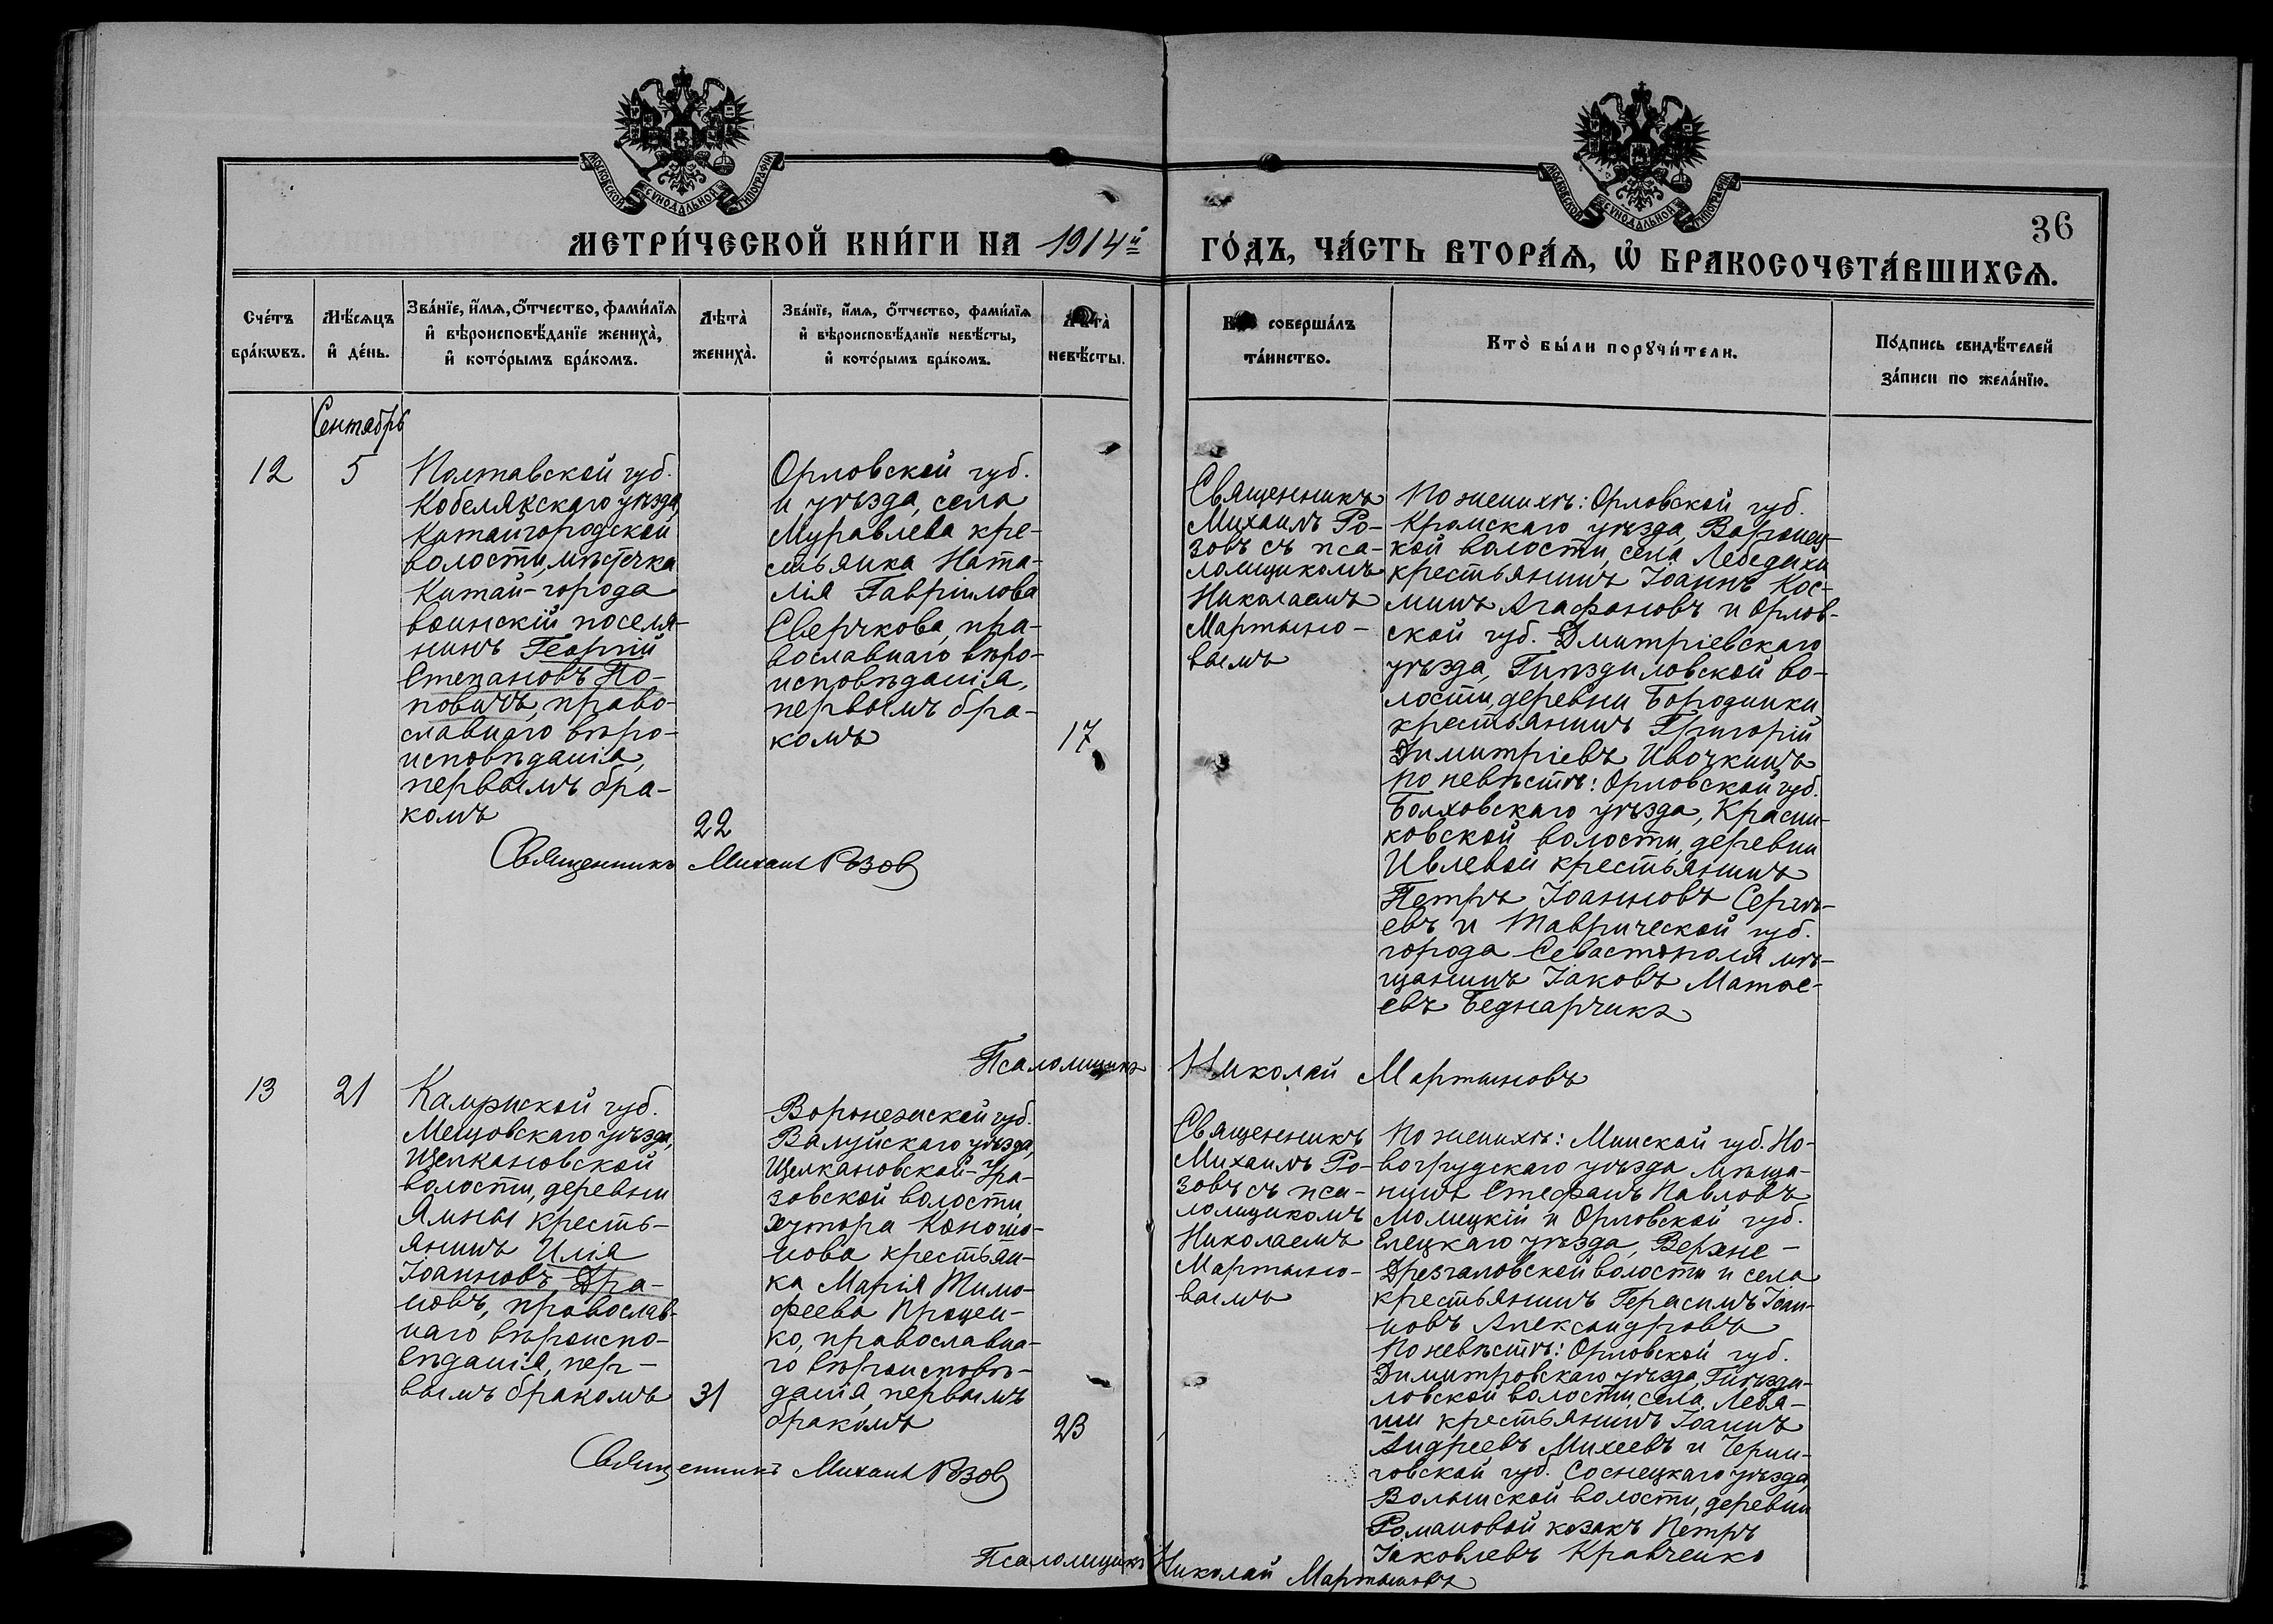 МОСКОВСКОЙ СѴНОДАЛЬНОЙ ТИПОГРАФІИ
МОСКОВСКОЙ СѴНОДАЛЬНОЙ ТИПОГРАФІИ
36
МЕТРИ́ЧЕСКОЙ КНИ́ГИ НА 1914й
ГО́ДЪ, ЧА́СТЬ ВТОРА́Ѧ, Ѡ҆ БРАКОСОЧЕТА́ВШИХСѦ.
Сче́тъ
бра́кѡвъ.
Мѣ́сѧцъ
и҆ де́нь.
Зва́нїе, и҆́мѧ, ѻ҆́тчество, фамилїѧ
и҆ вѣроисповѣ́данїе жениха̀,
и҆ кото́рымъ бра́комъ.
Лѣ́та̀
жениха̀.
Зва́нїе, и҆́мѧ, ѻ҆́тчество, фамилїѧ
и҆ вѣроисповѣ́данїе невѣ́сты,
и҆ кото́рымъ бра́комъ.
невѣ́сты.
соверша́лъ
та́инство.
Кто̀ бы́ли порꙋчи́тели.
По́дпись свидѣ́телей
за́писи по жела́нїю.
Сентябрь
12
5
Полтавской губ.
Кобелякскаго уѣзда,
Китайгородской
волости, мѣстечка
Китай-города
воинскій поселя-
нинъ Георгій
Степановъ По-
повичъ, право-
славнаго вѣро-
исповѣданія,
первымъ бра-
комъ
22
Орловской губ.
и уѣзда, села
Муравлева кре-
стьянка Ната-
лія Гавріилова
Сверчкова, пра-
вославнаго вѣро-
исповѣданія,
первымъ бра-
комъ
17
Священникъ Михаилъ Розов
Священникъ
Михаилъ Ро-
зовъ съ пса-
ломщикомъ
Николаемъ
Мартыно-
вымъ
По женихѣ: Орловской губ.
Кромскаго уѣзда,
кой волости, села Лебедихи
крестьянинъ Іоаннъ Кос-
минъ Агафоновъ и Орлов-
ской губ. Дмитріевскаго
уѣзда, Гнѣздиловской во-
лости, деревни Бородинки
крестьянинъ Григорій
Димитріевъ Ивочкинъ
По невѣстѣ: Орловской губ.
Болховскаго уѣзда, Красни-
ковской волости, деревни
Ивлевой крестьянинъ
Петръ Іоанновъ Сергѣ-
евъ и Таврической губ.
города Севастополя мѣ-
щанинъ Іаковъ Матѳе-
евъ Беднарчикъ
Псаломщикъ Николай Мартыновъ
13
21
Калужской губ.
Мещовскаго уѣзда,
Щелкановской
волости, деревни
Ямны кресть-
янинъ Илія
Іоанновъ Дра-
новъ, православ-
наго вѣроиспо-
вѣданія, пер-
вымъ бракомъ
31
Воронежской губ.
Валуйскаго уѣзда,
Щелкановской-Ура-
зовской волости,
хутора Коноше-
нова крестьян-
ка Марія Тимо-
феева Процен-
ко, православна-
го вѣроисповѣ-
данія, первымъ
бракомъ
23
Священникъ Михаилъ Розов
Священникъ
Михаилъ Ро-
зовъ съ пса-
ломщикомъ
Николаемъ
Мартыно-
вымъ
По женихѣ: Минской губ. Но-
вогрудскаго уѣзда мѣща-
нинъ Стефанъ Павловъ
Молицкій и Орловской губ.
Елецкаго уѣзда, Верхне-
Дрезгаловской волости и села
крестьянинъ Герасимъ Іоан-
новъ Александровъ
По невѣстѣ: Орловской губ.
Димитровскаго уѣзда, Гнѣзди-
ловской волости, села Лебя-
жи крестьянинъ Іоаннъ
Андреевъ Михеевъ и Черни-
говской губ. Соснецкаго уѣзда,
Волынской волости, деревни
Романовой козакъ Петръ
Іаковлевъ Кравченко
Псаломщикъ Николай Мартыновъ